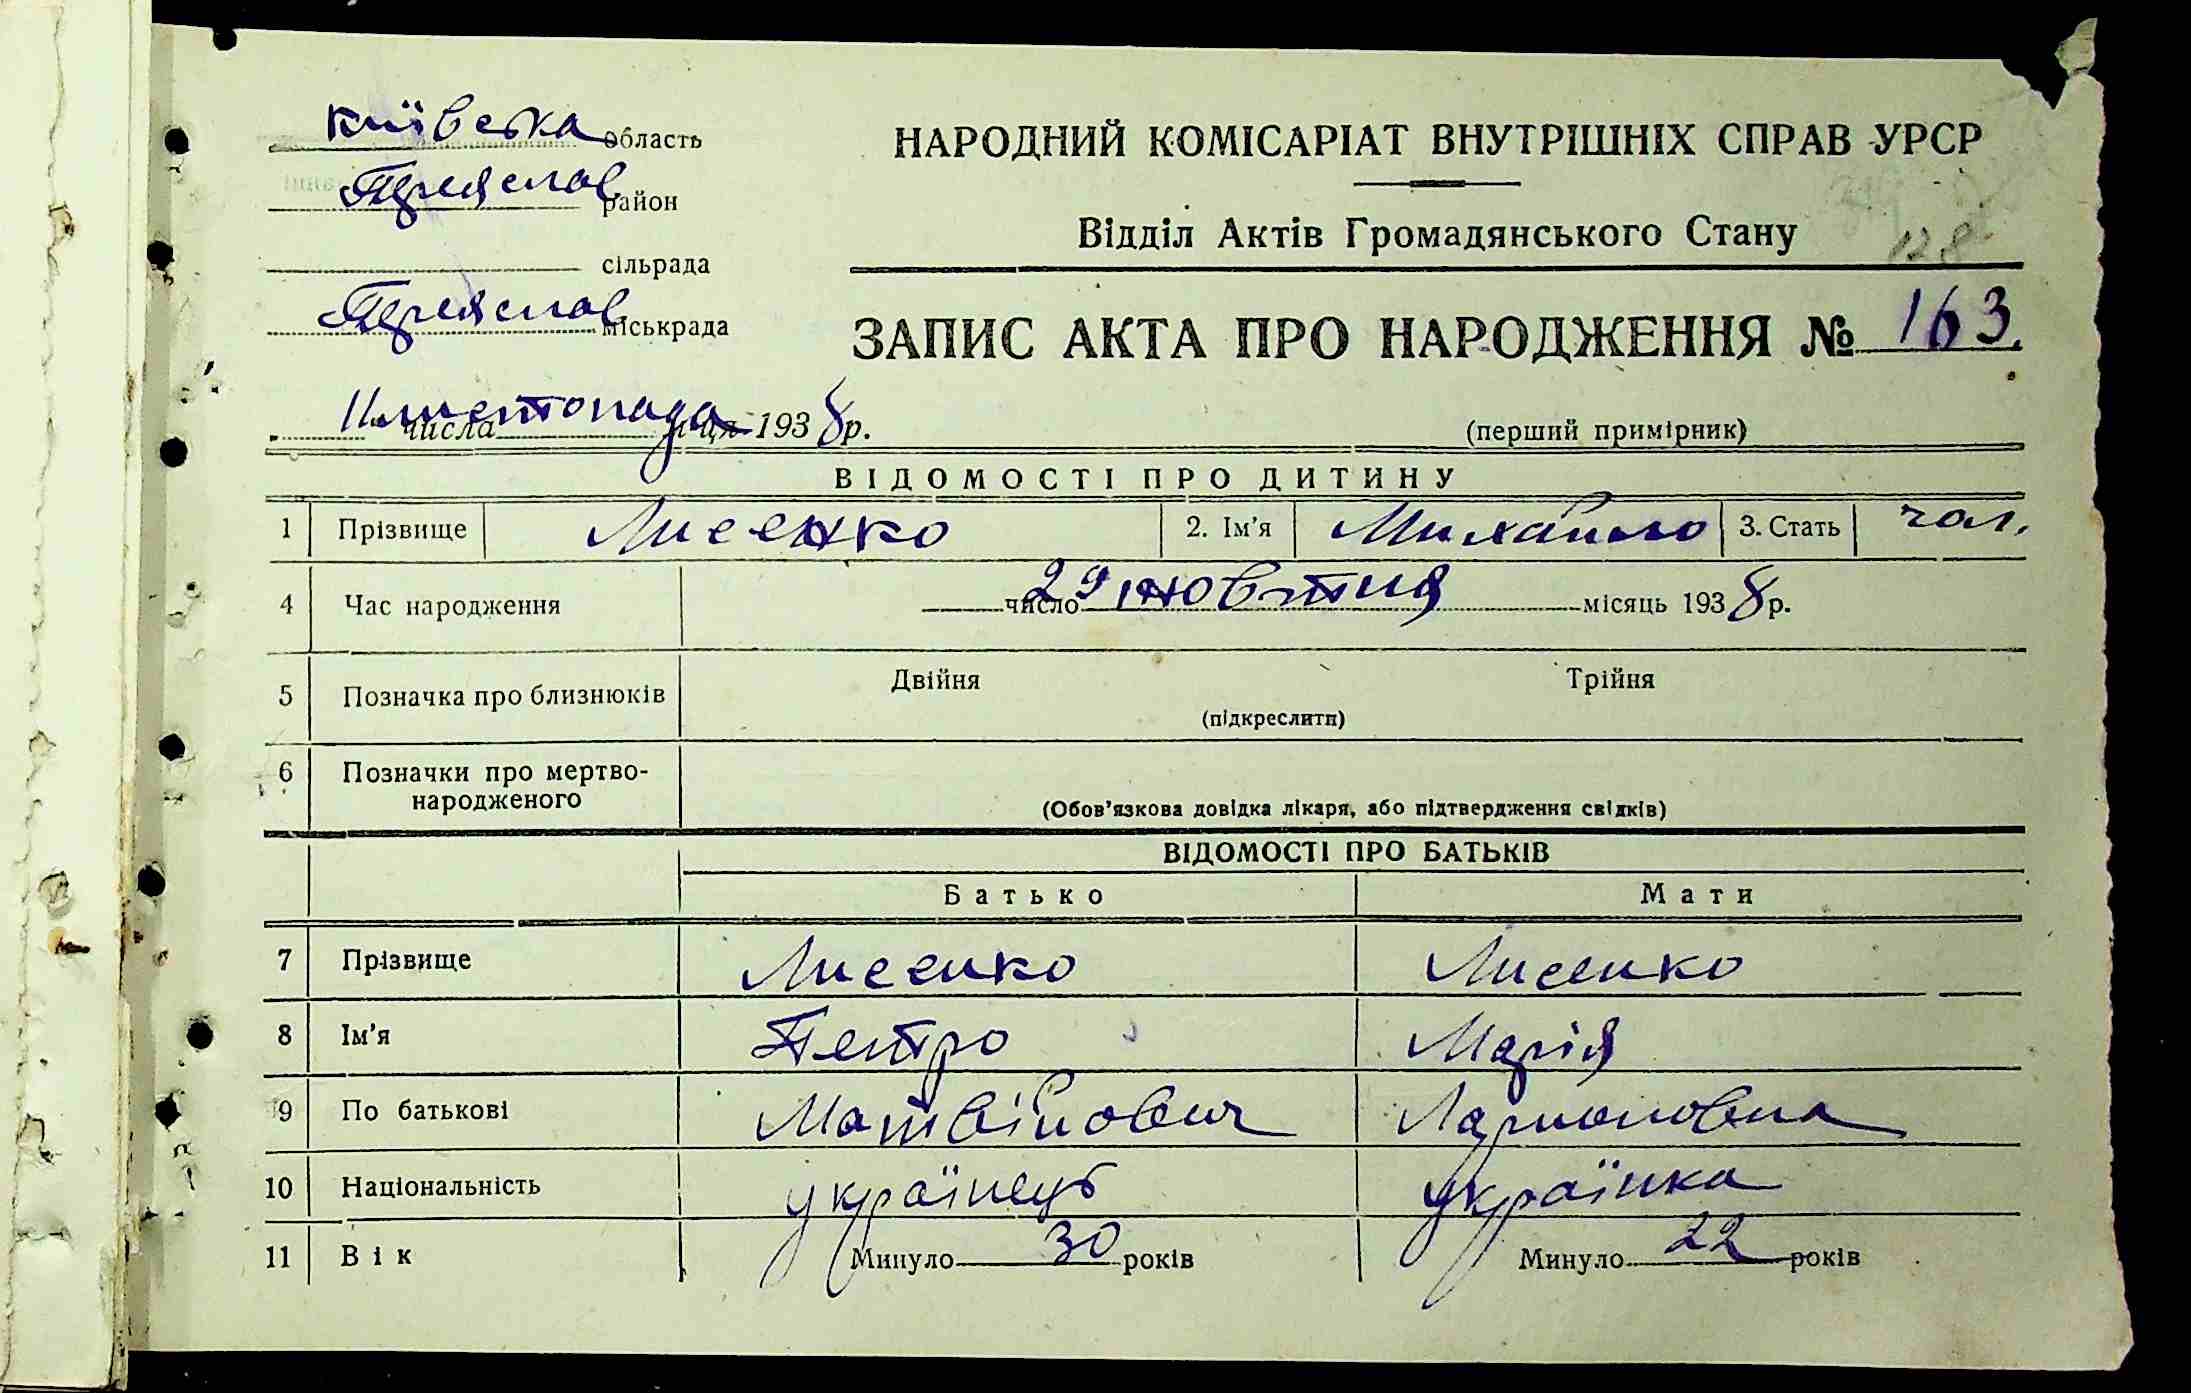 Київська область
Переяслав район
сільрада
Переяслав міськрада
НАРОДНИЙ КОМІСАРІАТ ВНУТРІШНІХ СПРАВ УРСР
Відділ Актів Громадянського Стану
128
ЗАПИС АКТА ПРО НАРОДЖЕННЯ № 163
11 числа листопада м-ця 1938 р.
(перший примірник)
ВІДОМОСТІ ПРО ДИТИНУ
1 Прізвище Лисенко 2. Ім'я Михайло 3. Стать чол.
4 Час народження 29 число жовтня місяць 1938 р.
5 Позначка про близнюків Двійня Трійня
(підкреслити)
6 Позначки про мертво-
народженого
(Обов'язкова довідка лікаря, або підтвердження свідків)
ВІДОМОСТІ ПРО БАТЬКІВ
Батько Мати
7 Прізвище Лисенко Лисенко
8 Ім'я Петро Марія
9 По батькові Матвійович Ларионовна
10 Національність українець українка
11 Вік Минуло 30 років Минуло 22 років